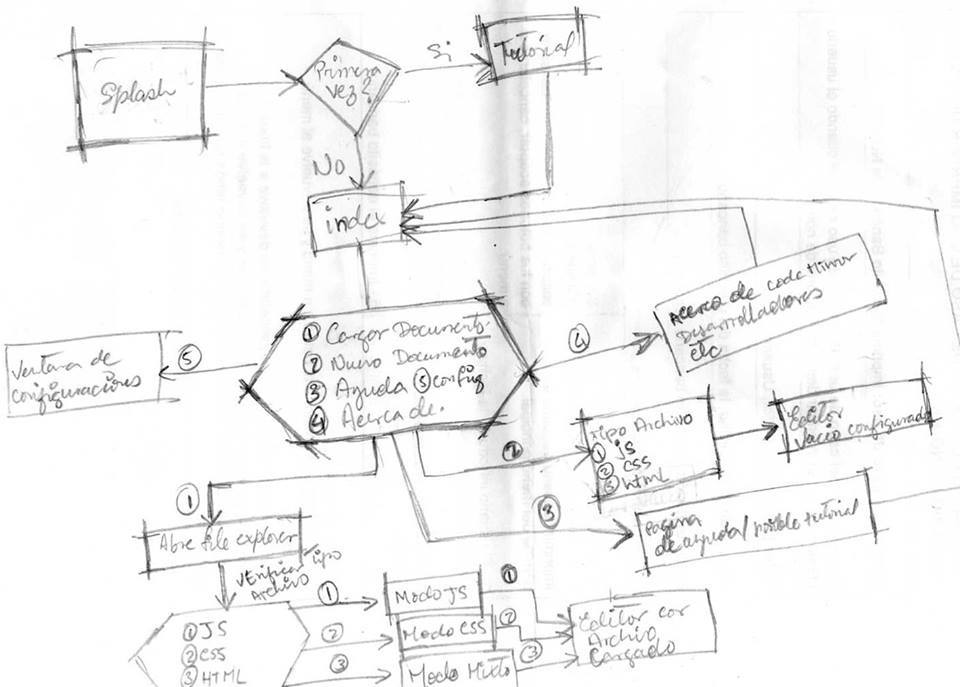 Splash
Primera
vez?
Si
Tutorial
No
index
① Cargar Documento.
② Nuevo Documento
③ Ayuda ⑤ config
④ Acerca de.
⑤
Ventana de
configuraciones
④
Acerca de code Mirror
Desarrolladores
etc
②
tipo Archivo
① JS
② CSS
③ html
Editor
Vacio configurado
③
Pagina
de ayuda/ posible tutorial
①
Abre file explorer
Verificar tipo
Archivo
① JS
② CSS
③ HTML
①
②
③
Modo JS
Modo CSS
Modo Mixto
①
②
③
Editor con
Archivo
Cargado